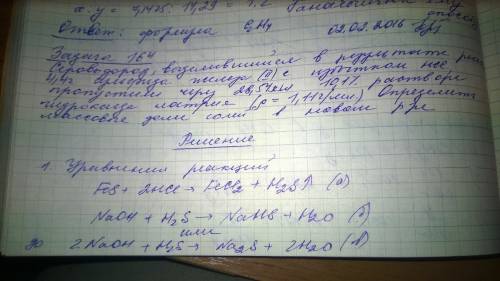 x : y = : = 1:2
Ответ: формула C2H4 02.02.2016
Задача 164
Сероводород, выделившийся в результате
сульфида железа (II) с избытком HCl
пропустили через 26,54 мл 10% раствора
гидроксида натрия (ρ = 1,11 г/мл). Определить
массовые доли соли в новом р-ре
Решение
1. Уравнения реакций
FeS + 2HCl → FeCl2 + H2S↑ (а)
NaOH + H2S → NaHS + H2O (б)
или
2NaOH + H2S → Na2S + 2H2O (в)